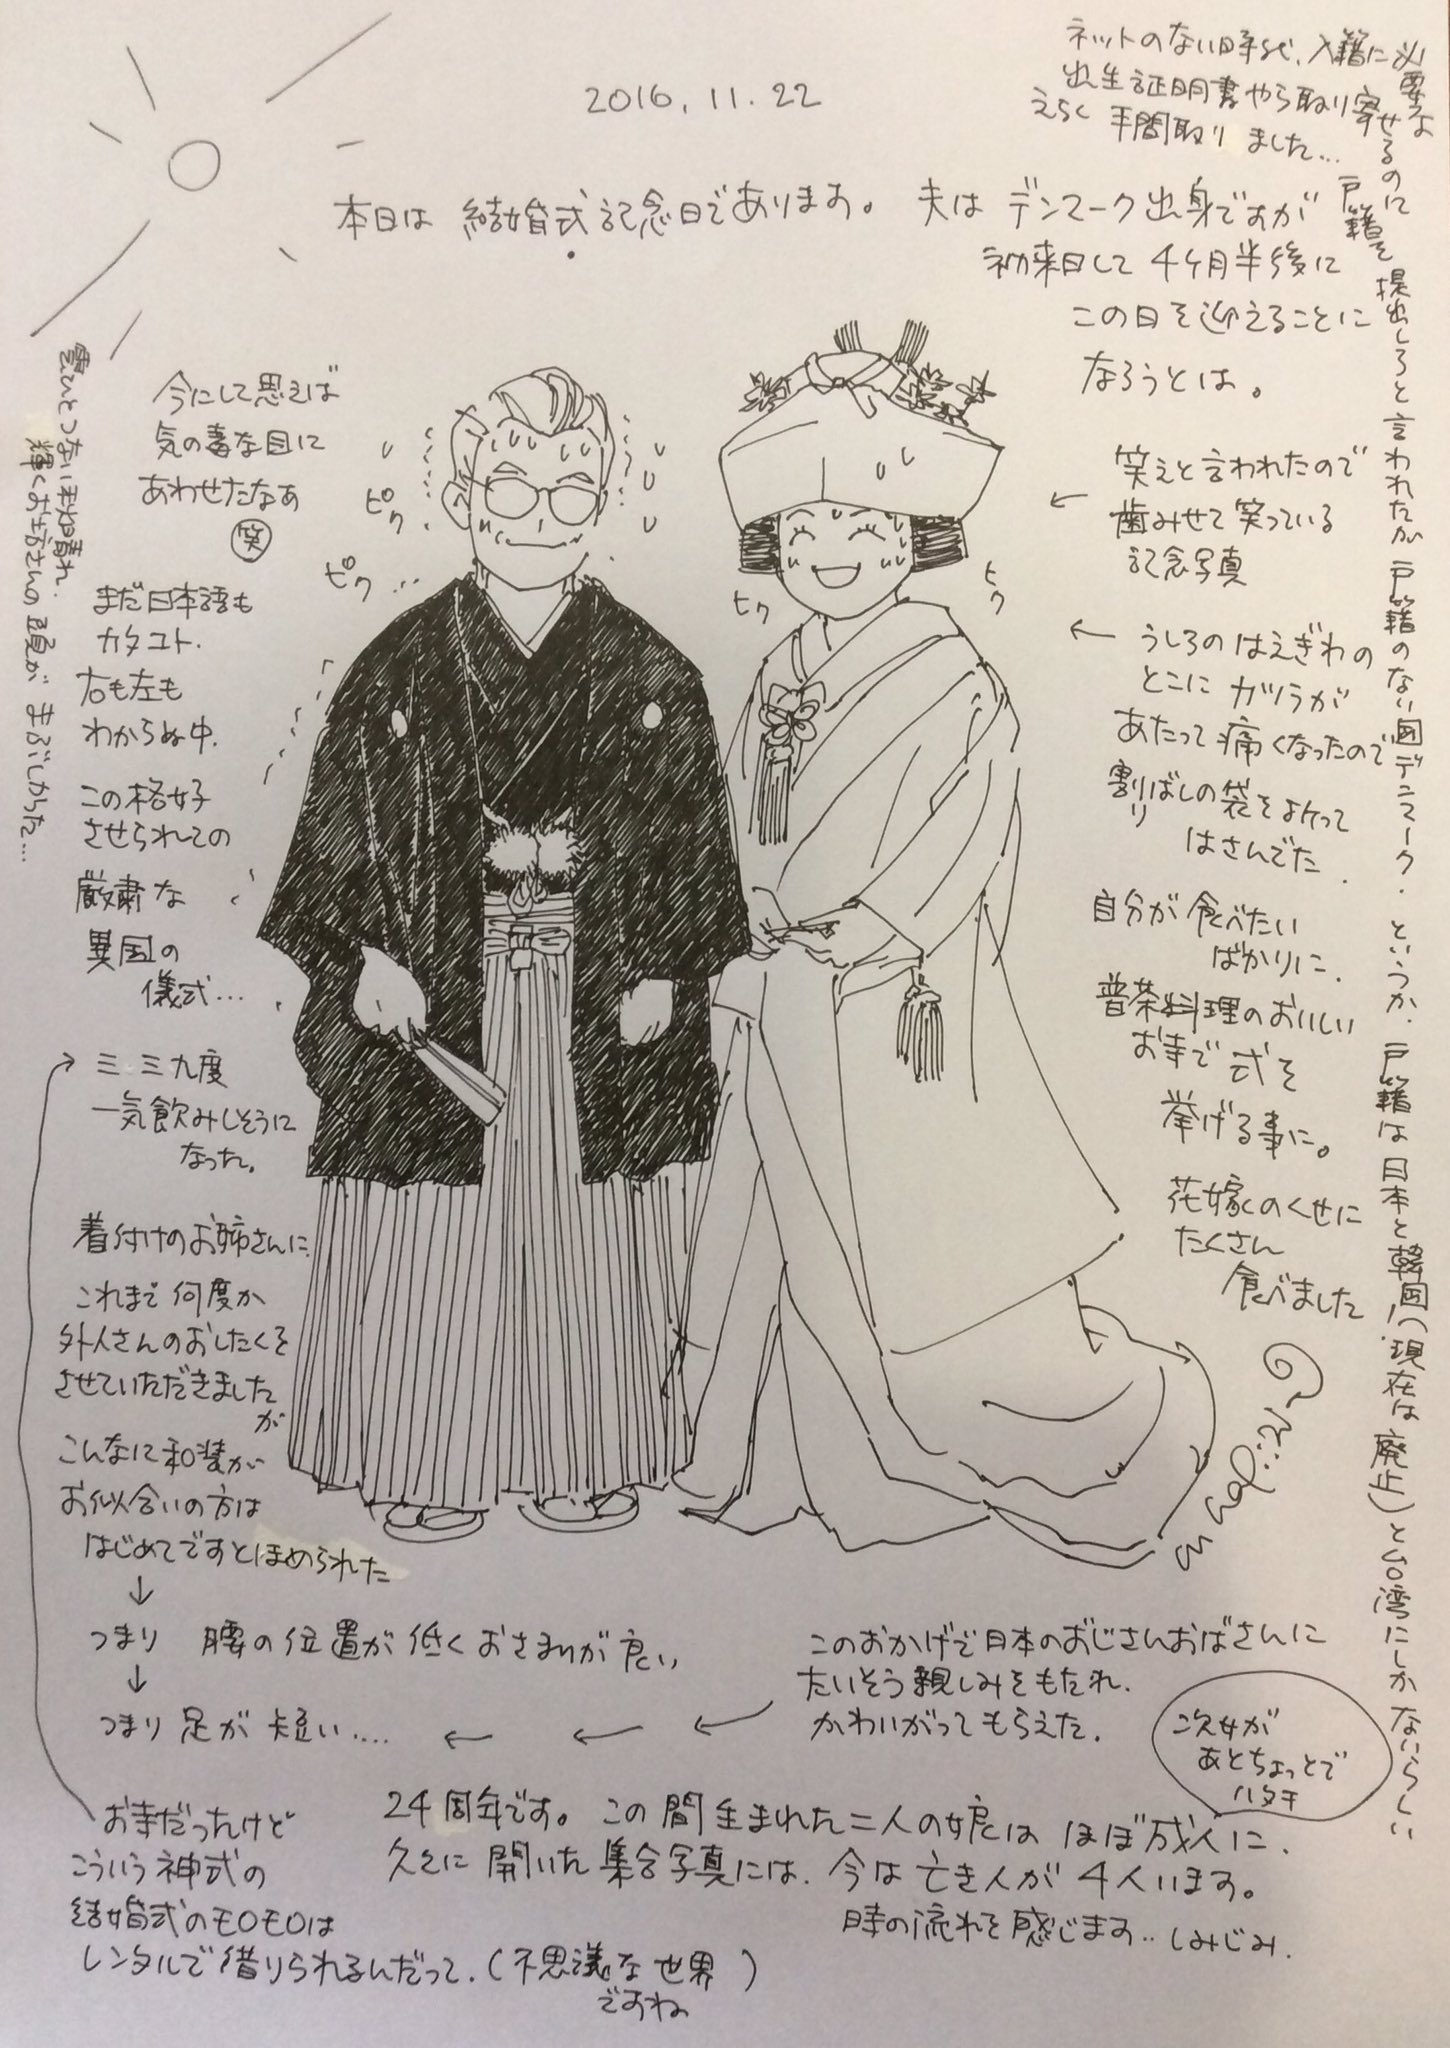 2016.11.22
本日は 結婚式記念日であります。夫は デンマーク出身ですが
初来日して 4ヶ月半後に
この日を迎えることに
なろうとは。
ネットのない時代、入籍に必要な
出生証明書やら取り寄せるのに
えらく 手間取りました…
戸籍を 提出しろと 言われたが 戸籍のない国デンマーク. というか. 戸籍は 日本と 韓国(現在は 廃止)と台湾にしかないらしい
雲ひとつない秋晴れ.
輝くお坊さんの頭が まぶしかった…
今にして思えば
気の毒な目に
あわせたなぁ
笑
まだ日本語も
カタコト.
右も左も
わからぬ中.
この格好
させられての
厳粛な
異国の
儀式…
三・三九度
一気飲みしそうに
なった。
着付けのお姉さんに.
これまで 何度か
外人さんのおしたくを
させていただきました
が
こんなに和装が
お似合いの方は
はじめてですとほめられた
↓
つまり 腰の位置が 低くおさまりが良い
↓
つまり 足が 短い....
ピク
ピク
ヒク
ヒク
← 笑えと言われたので
歯みせて笑っている
記念写真
← うしろの はえぎわの
とこに カツラが
あたって 痛くなったので
割りばしの袋をよけって
はさんでた.
自分が 食べたい
ばかりに.
普茶料理のおいしい
お寺で 式を
挙げる事に。
花嫁のくせに
たくさん
食べました
このおかげで日本のおじさんおばさんに
たいそう 親しみをもたれ.
かわいがってもらえた.
← ← ←
次女が
あとちょっとで
ハタチ
24周年です。この間生まれた二人の娘は ほぼ成人に.
久々に 開いた 集合写真には. 今は 亡き人が 4人います。
時の流れを感じます.. しみじみ.
お寺だったけど
こういう 神式の
結婚式のモロモロは
レンタルで 借りられるんだって.(不思議な世界)
ですね